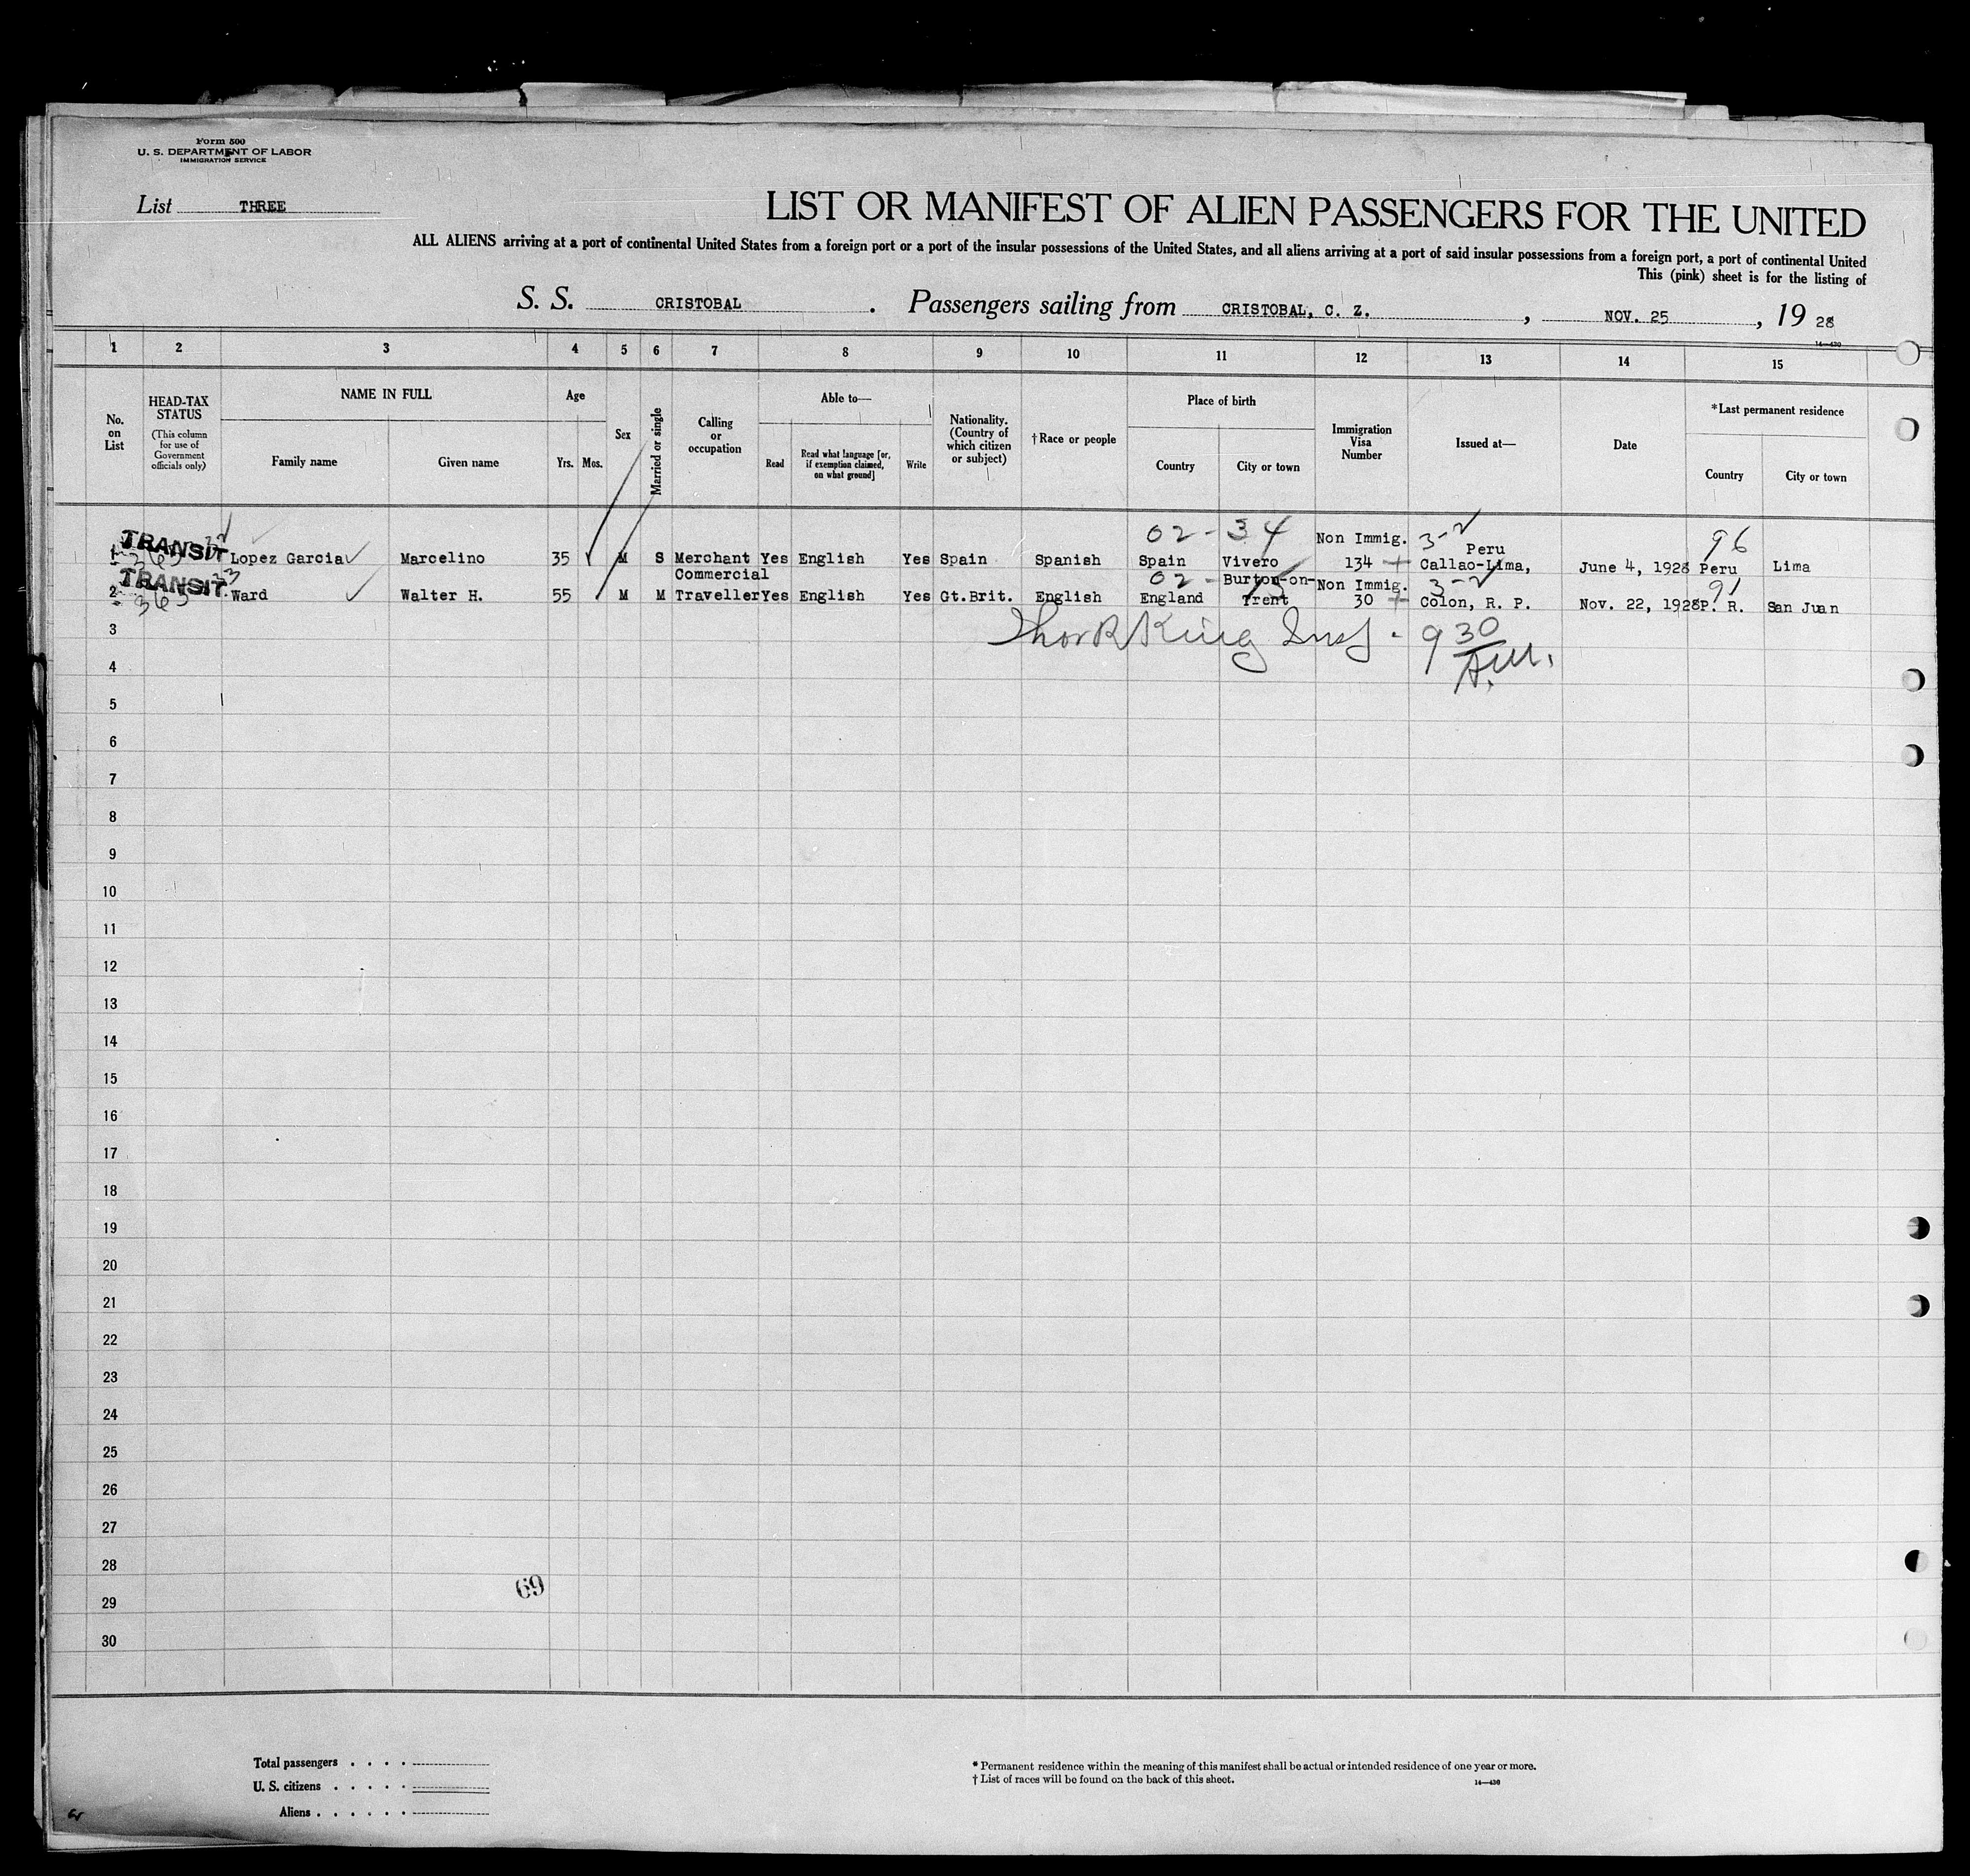 Form 500
U. S. DEPARTMENT OF LABOR
IMMIGRATION SERVICE
List THREE
LIST OR MANIFEST OF ALIEN PASSENGERS FOR THE UNITED
ALL ALIENS arriving at a port of continental United States from a foreign port or a port of the insular possessions of the United States, and all aliens arriving at a port of said insular possessions from a foreign port, a port of continental United
This (pink) sheet is for the listing of
S. S. CRISTOBAL. Passengers sailing from CRISTOBAL, C. Z., NOV. 25, 19 28
14—430
1 2 3 4 5 6 7 8 9 10 11 12 13 14 15
No. on List
HEAD-TAX STATUS
(This column for use of Government officials only)
NAME IN FULL
Family name
Given name
Age
Yrs. Mos.
Sex
Married or single
Calling or occupation
Able to—
Read
Read what language [or, if exemption claimed, on what ground]
Write
Nationality. (Country of which citizen or subject)
†Race or people
Place of birth
Country
City or town
Immigration Visa Number
Issued at—
Date
*Last permanent residence
Country
City or town
02 - 34 3-2 96
1 TRANSIT Lopez Garcia Marcelino 35 M S Merchant Yes English Yes Spain Spanish Spain Vivero Non Immig. 134 Callao-Lima, Peru June 4, 1928 Peru Lima
363
02 - 3-2 91
2 TRANSIT Ward Walter H. 55 M M Commercial Traveller Yes English Yes Gt.Brit. English England Burton-on-Trent Non Immig. 30 Colon, R. P. Nov. 22, 1928 P. R. San Juan
363
King Insp. 9 30 A.M.
3
4
5
6
7
8
9
10
11
12
13
14
15
16
17
18
19
20
21
22
23
24
25
26
27
28
69
29
30
Total passengers . . . .
U. S. citizens . . . . .
Aliens . . . . . .
* Permanent residence within the meaning of this manifest shall be actual or intended residence of one year or more.
† List of races will be found on the back of this sheet.
14—430